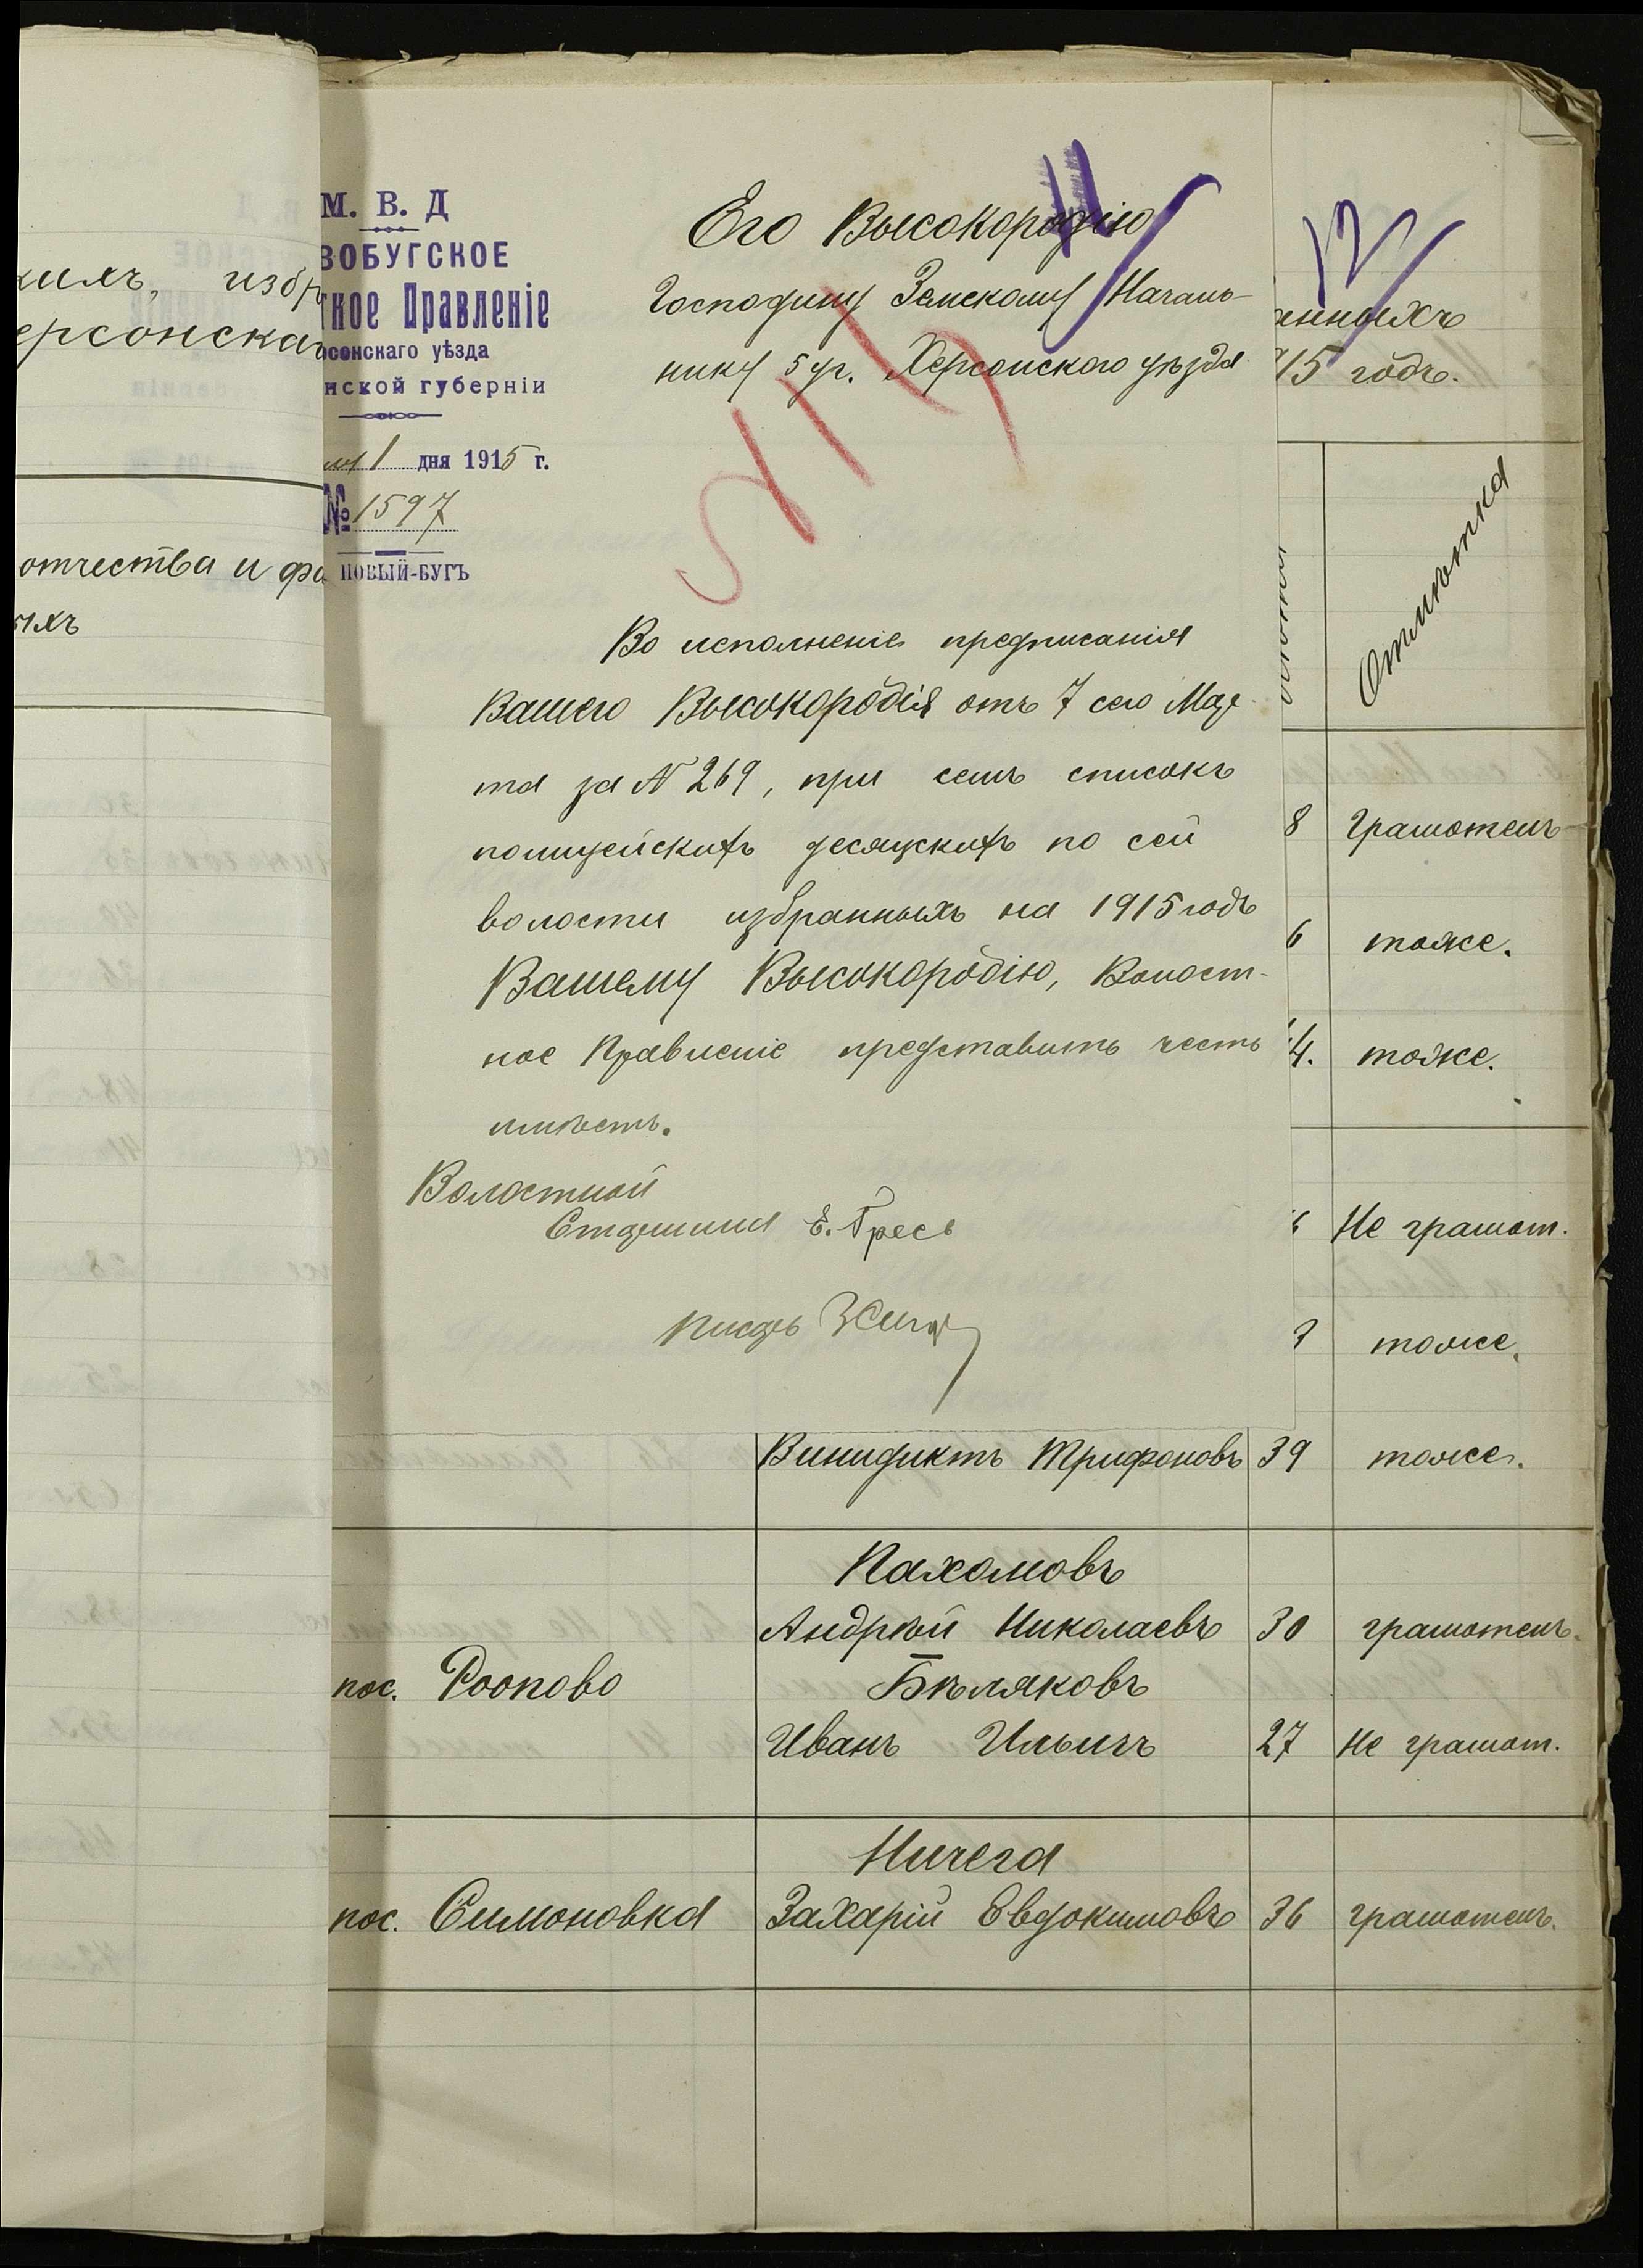 М. В. Д
ВОБУГСКОЕ
ное Правленіе
рсонскаго уѣзда
нской губерніи
1 дня 1915 г.
№ 1597
НОВЫЙ-БУГЪ
Его Высокородію
Господину Земскому Началь-
нику 5 уч. Херсонского уѣзда
Во исполненіе предписанія
Вашего Высокородія отъ 7 сего Мар-
та за № 269, при семъ списокъ
полицейскихъ десяцкихъ по сей
волости избранныхъ на 1915 годъ
Вашему Высокородію, Волост-
ное Правленіе представить честь
имѣетъ.
Волостной
Старшина Е. Гресь
Писарь
избр
ерсонска
отчества и фа
ыхъ
12
анныхъ
915 годъ.
Отмѣтка
8 грамотенъ
6 тоже.
4. тоже.
6 Не грамот.
3 тоже.
Винидиктъ Трифоновъ 39 тоже.
Пахомовъ
Андрѣй Николаевъ 30 грамотенъ.
пос. Роопово Бѣляковъ
Иванъ Ильичъ 27 Не грамот.
Ничега
пос. Симоновка Захарій Евдокимовъ 36 грамотенъ.